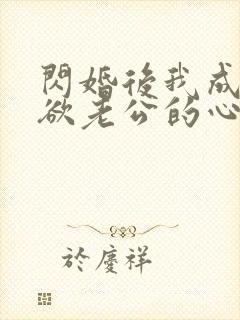 閃婚後我成
欲老公的心
於慶祥